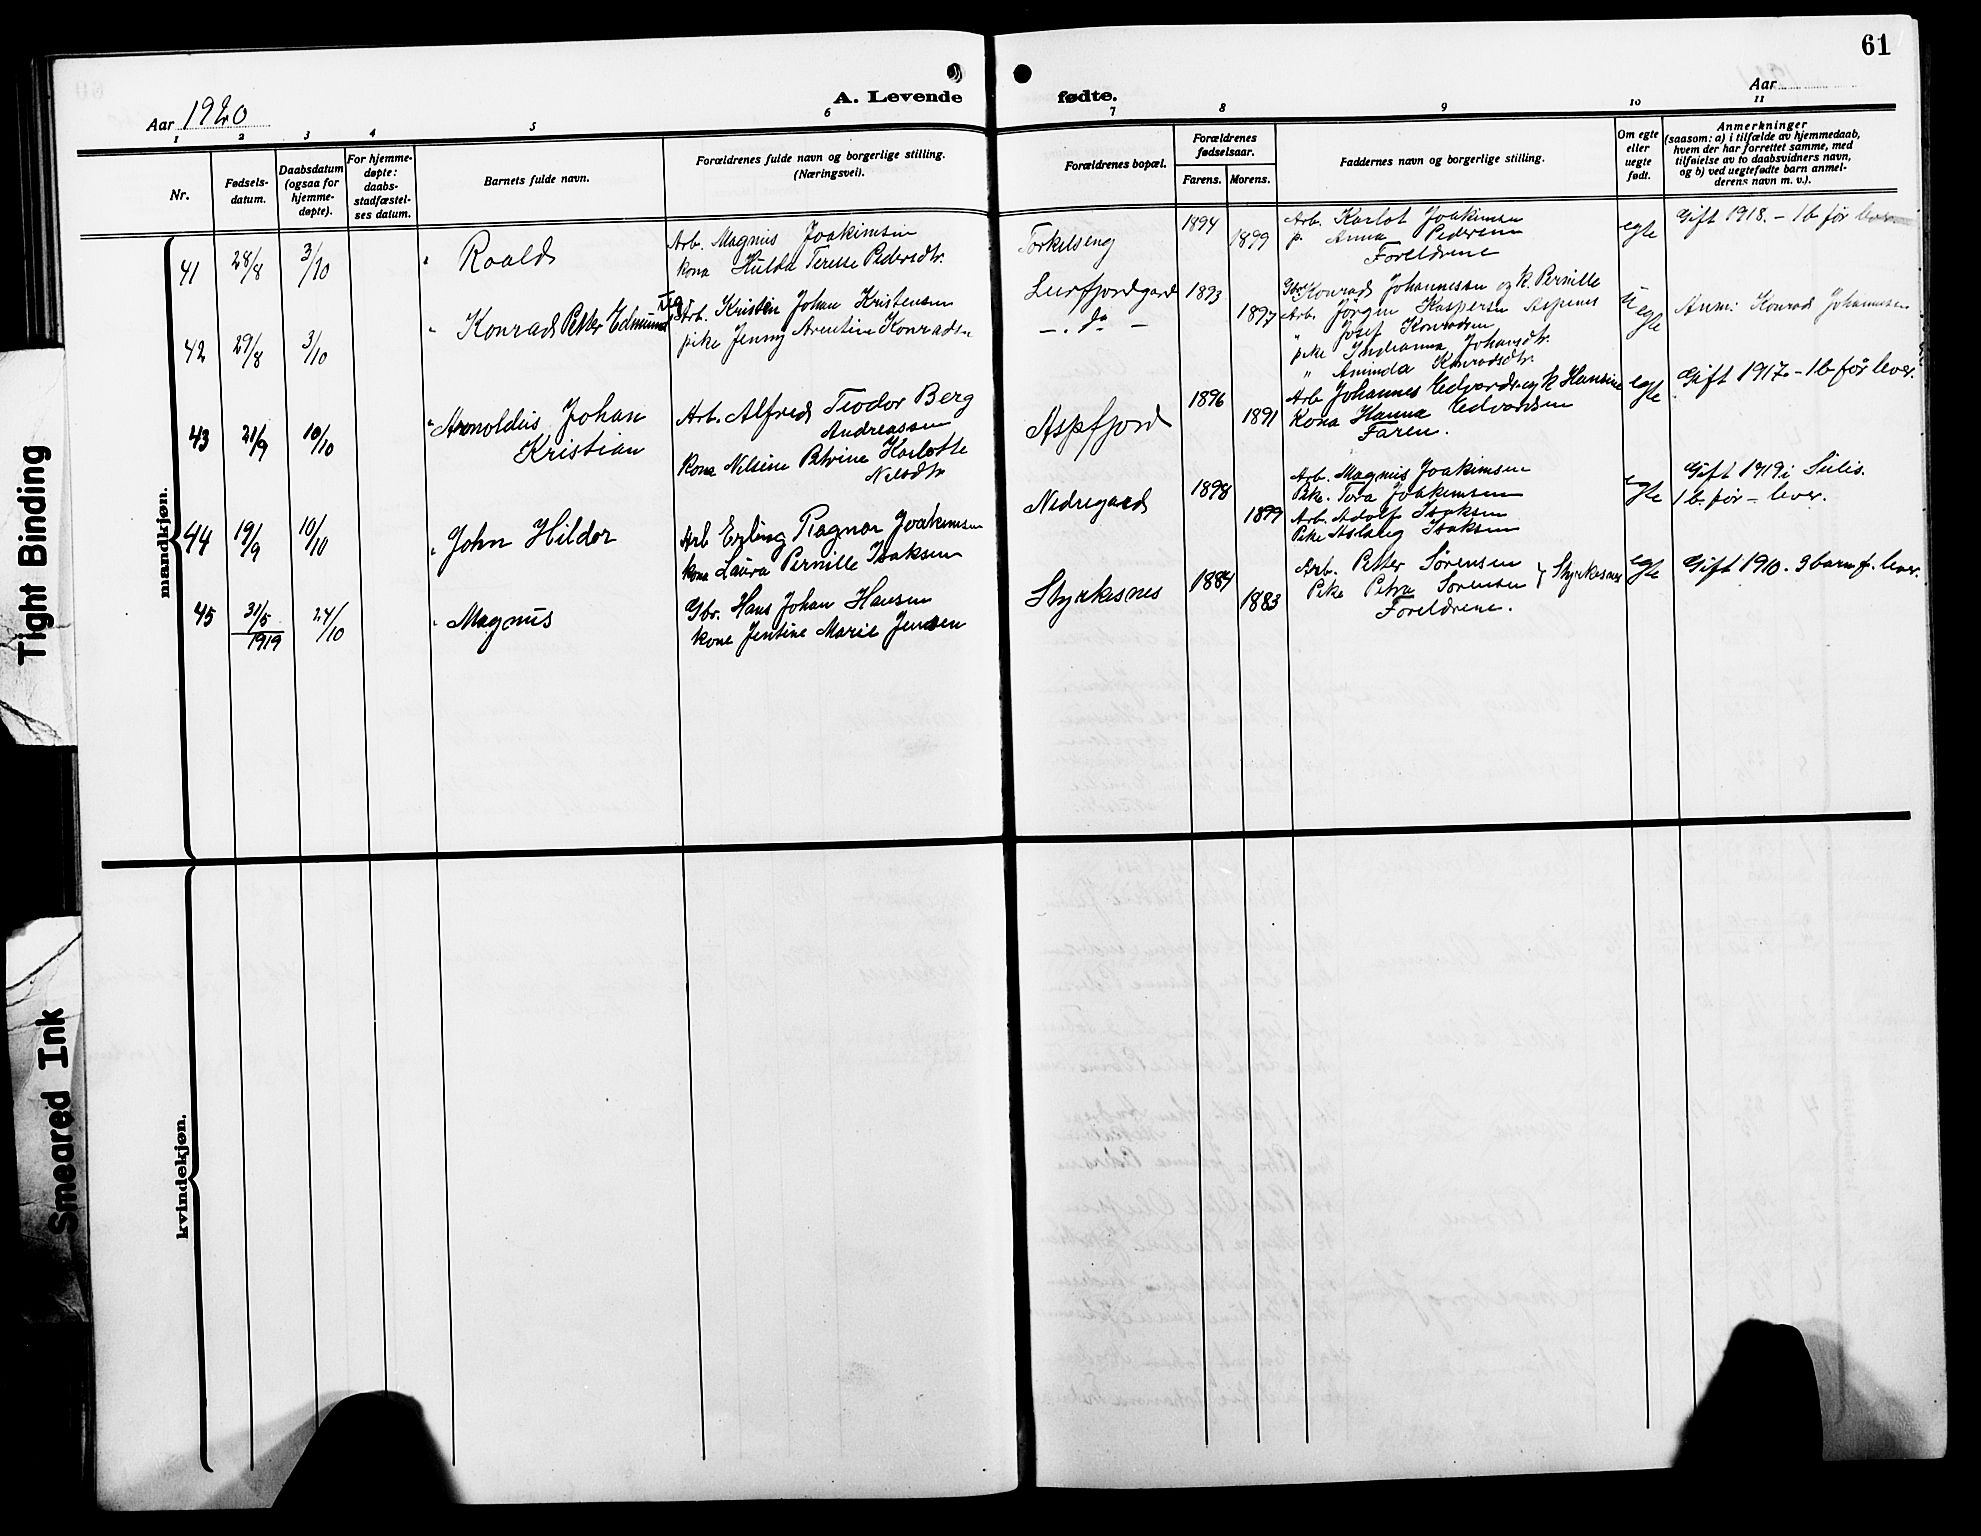 61
Aar 1920
A. Levende fødte.
Aar
1 2 3 4 5 6 7 8 9 10 11
Nr.
Fødsels-
datum.
Daabsdatum
(ogsaa for
hjemme-
døpte).
For hjemme-
døpte:
daabs-
stadfæstel-
ses datum.
Barnets fulde navn.
Forældrenes fulde navn og borgerlige stilling.
(Næringsvei).
Forældrenes bopæl.
Forældrenes
fødselsaar.
Farens. Morens.
Faddernes navn og borgerlige stilling.
Om egte
eller
uegte
født.
Anmerkninger
(saasom: a) i tilfælde av hjemmedaab,
hvem der har forrettet samme, med
tilføielse av to daabsvidners navn,
og b) ved uegtefødte barn anmel-
derens navn m. v.).
mandkjøn.
41 28/8 3/10 " Roald
Arb. Magnus Joakimsen
kona Hulda Terese Pedersdtr.
Torkelseng 1894 1899
Arb. Karlot Joakimsen
p. Anna Pedersen
Foreldrene
egte
Gift 1918. – 1 b før lever
42 29/8 3/10 " Konrad Petter Edmund
Arb. Kristin Johan Kristensen
pike Jenny Arentine Konradsen
Leirfjordgard 1893
– . do – 1897
Gbr. Konrad Johannessen og k. Pernille
Arb. Jörgen Kaspersen Aspenes
" Josef Konradsen
pike Indianna Johansdtr.
" Aminda Konradsdtr.
Uegte
Anm: Konrad Johannesen
43 21/9 10/10 " Arnoldus Johan
Kristian
Arb. Alfred Teodor Berg
Andreassen
kona Nilsine Petrine Karlotte
Nilsdtr
Aspfjord 1896 1891
Arb Johannes Edvards. og k Hansine
Kona Hanna Edvardsen
Faren.
egte
Gift 1917. – 1 b før lever.
44 19/9 10/10 " John Hildor
Arb Erling Ragnar Joakimsen
kona Laura Pernille Isaksen
Nedregaard 1898 1899
Arb. Magnus Joakimsen
Pike. Tora Joakimsen
Arb. Adolf Isaksen
Pike Aslaug Isaksen
egte
Gift 1919 i Sulis.
1 b. før – lever.
45 31/5 1919 24/10 " Magnus
Gbr. Hans Johan Hansen
kone Jentine Marie Jensen
Styrkesnes 1884 1883
Arb. Petter Sörensen
Pike Petra Sörensen } Styrkesnes
Foreldrene.
egte
Gift 1910. 3 barn f. lever.
kvindekjøn.
Tight Binding
Smeared Ink